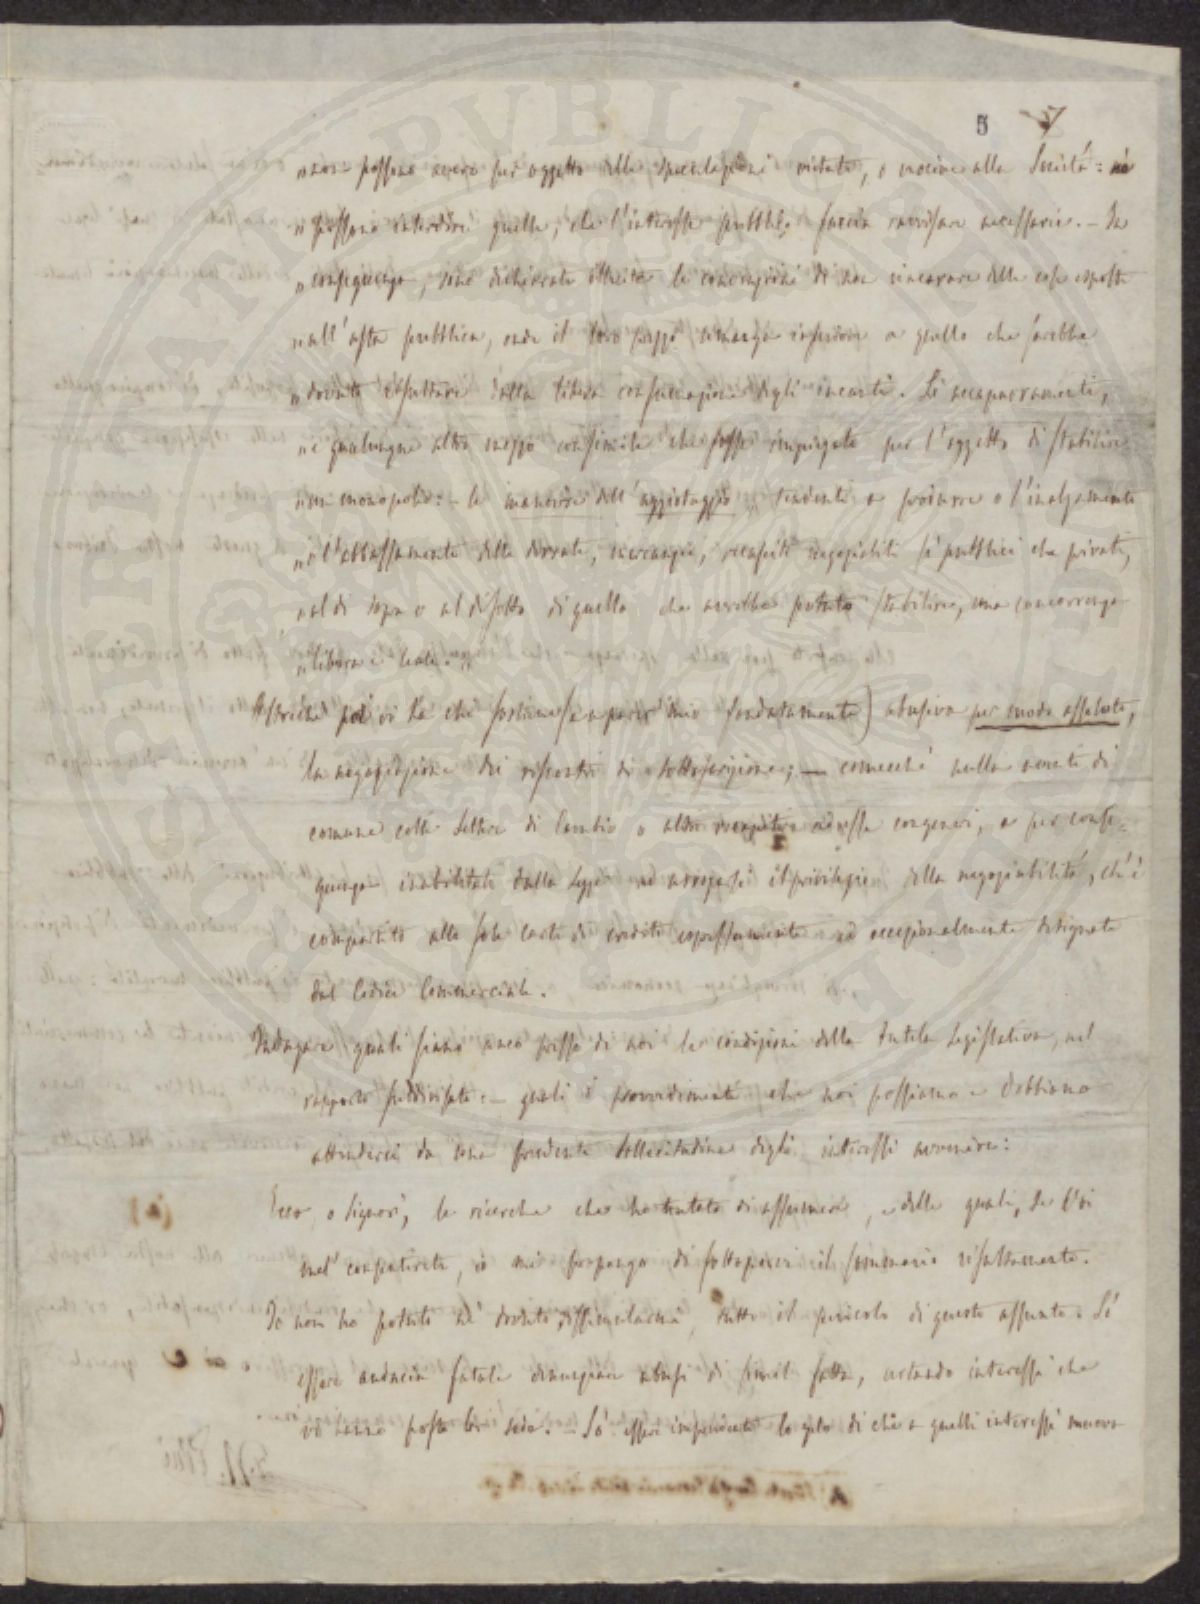 5
" non possono avere per oggetto delle speculazioni vietate, o nocive alla Società: nè
" possono interdire quelle, che l'interesse pubblico faccia ravvisare necessarie. – In
" conseguenza, sono dichiarate illecite le convenzioni di non rincarare delle cose esposte
" all'asta pubblica, onde il loro prezzo rimanga inferiore a quello che sarebbe
" dovuto risultare dalla libera consumazione degli incanti. Gli accaparramenti,
" e qualunque altro mezzo consimile che fosse impiegato per l'oggetto di stabilire
" un monopolio: – le manovre dell'aggiotaggio tendenti a produrre o l'inalzamento
" o l'abbassamento delle derrate, mercanzie, recapiti negoziabili sì pubblici che privati,
" al di sopra o al disotto di quello che avrebbe potuto stabilire, una concorrenza
" libera e leale. "
poi vi ha chi sostiene (e a parer mio fondatamente) abusiva per modo assoluto,
la negoziazione dei riscontri di sottoscrizione; – comecchè nulla aventi di
comune colle Lettere di Cambio o altri recapiti ad esse congeneri, e per conse-
guenza inabilitati dalla Legge ad arrogarsi il privilegio della negoziabilità, ch'è
compartito alle sole carte di credito espressamente ed eccezionalmente designate
dal Codice Commerciale.
Indagare quali siano anco presso di noi le condizioni della tutela legislativa, nel
rapporto suddivisato: – quali i provvedimenti che noi possiamo e dobbiamo
attenderci da una prudente sollecitudine degli interessi avvenire:
Ecco o Signori, le ricerche che ho tentato di assumere, e delle quali, se Voi
mel consentirete, io mi propongo di sottoporvi il sommario resultamento.
Io non ho potuto nè dovuto dissimularmi tutto il pericolo di questo assunto. So
essere audacia fatale denunziare abusi di simil fatta, urtando interessi che
vi hanno posta lor sede. – So essere imprudente lo zelo di chi a quelli interessi muova